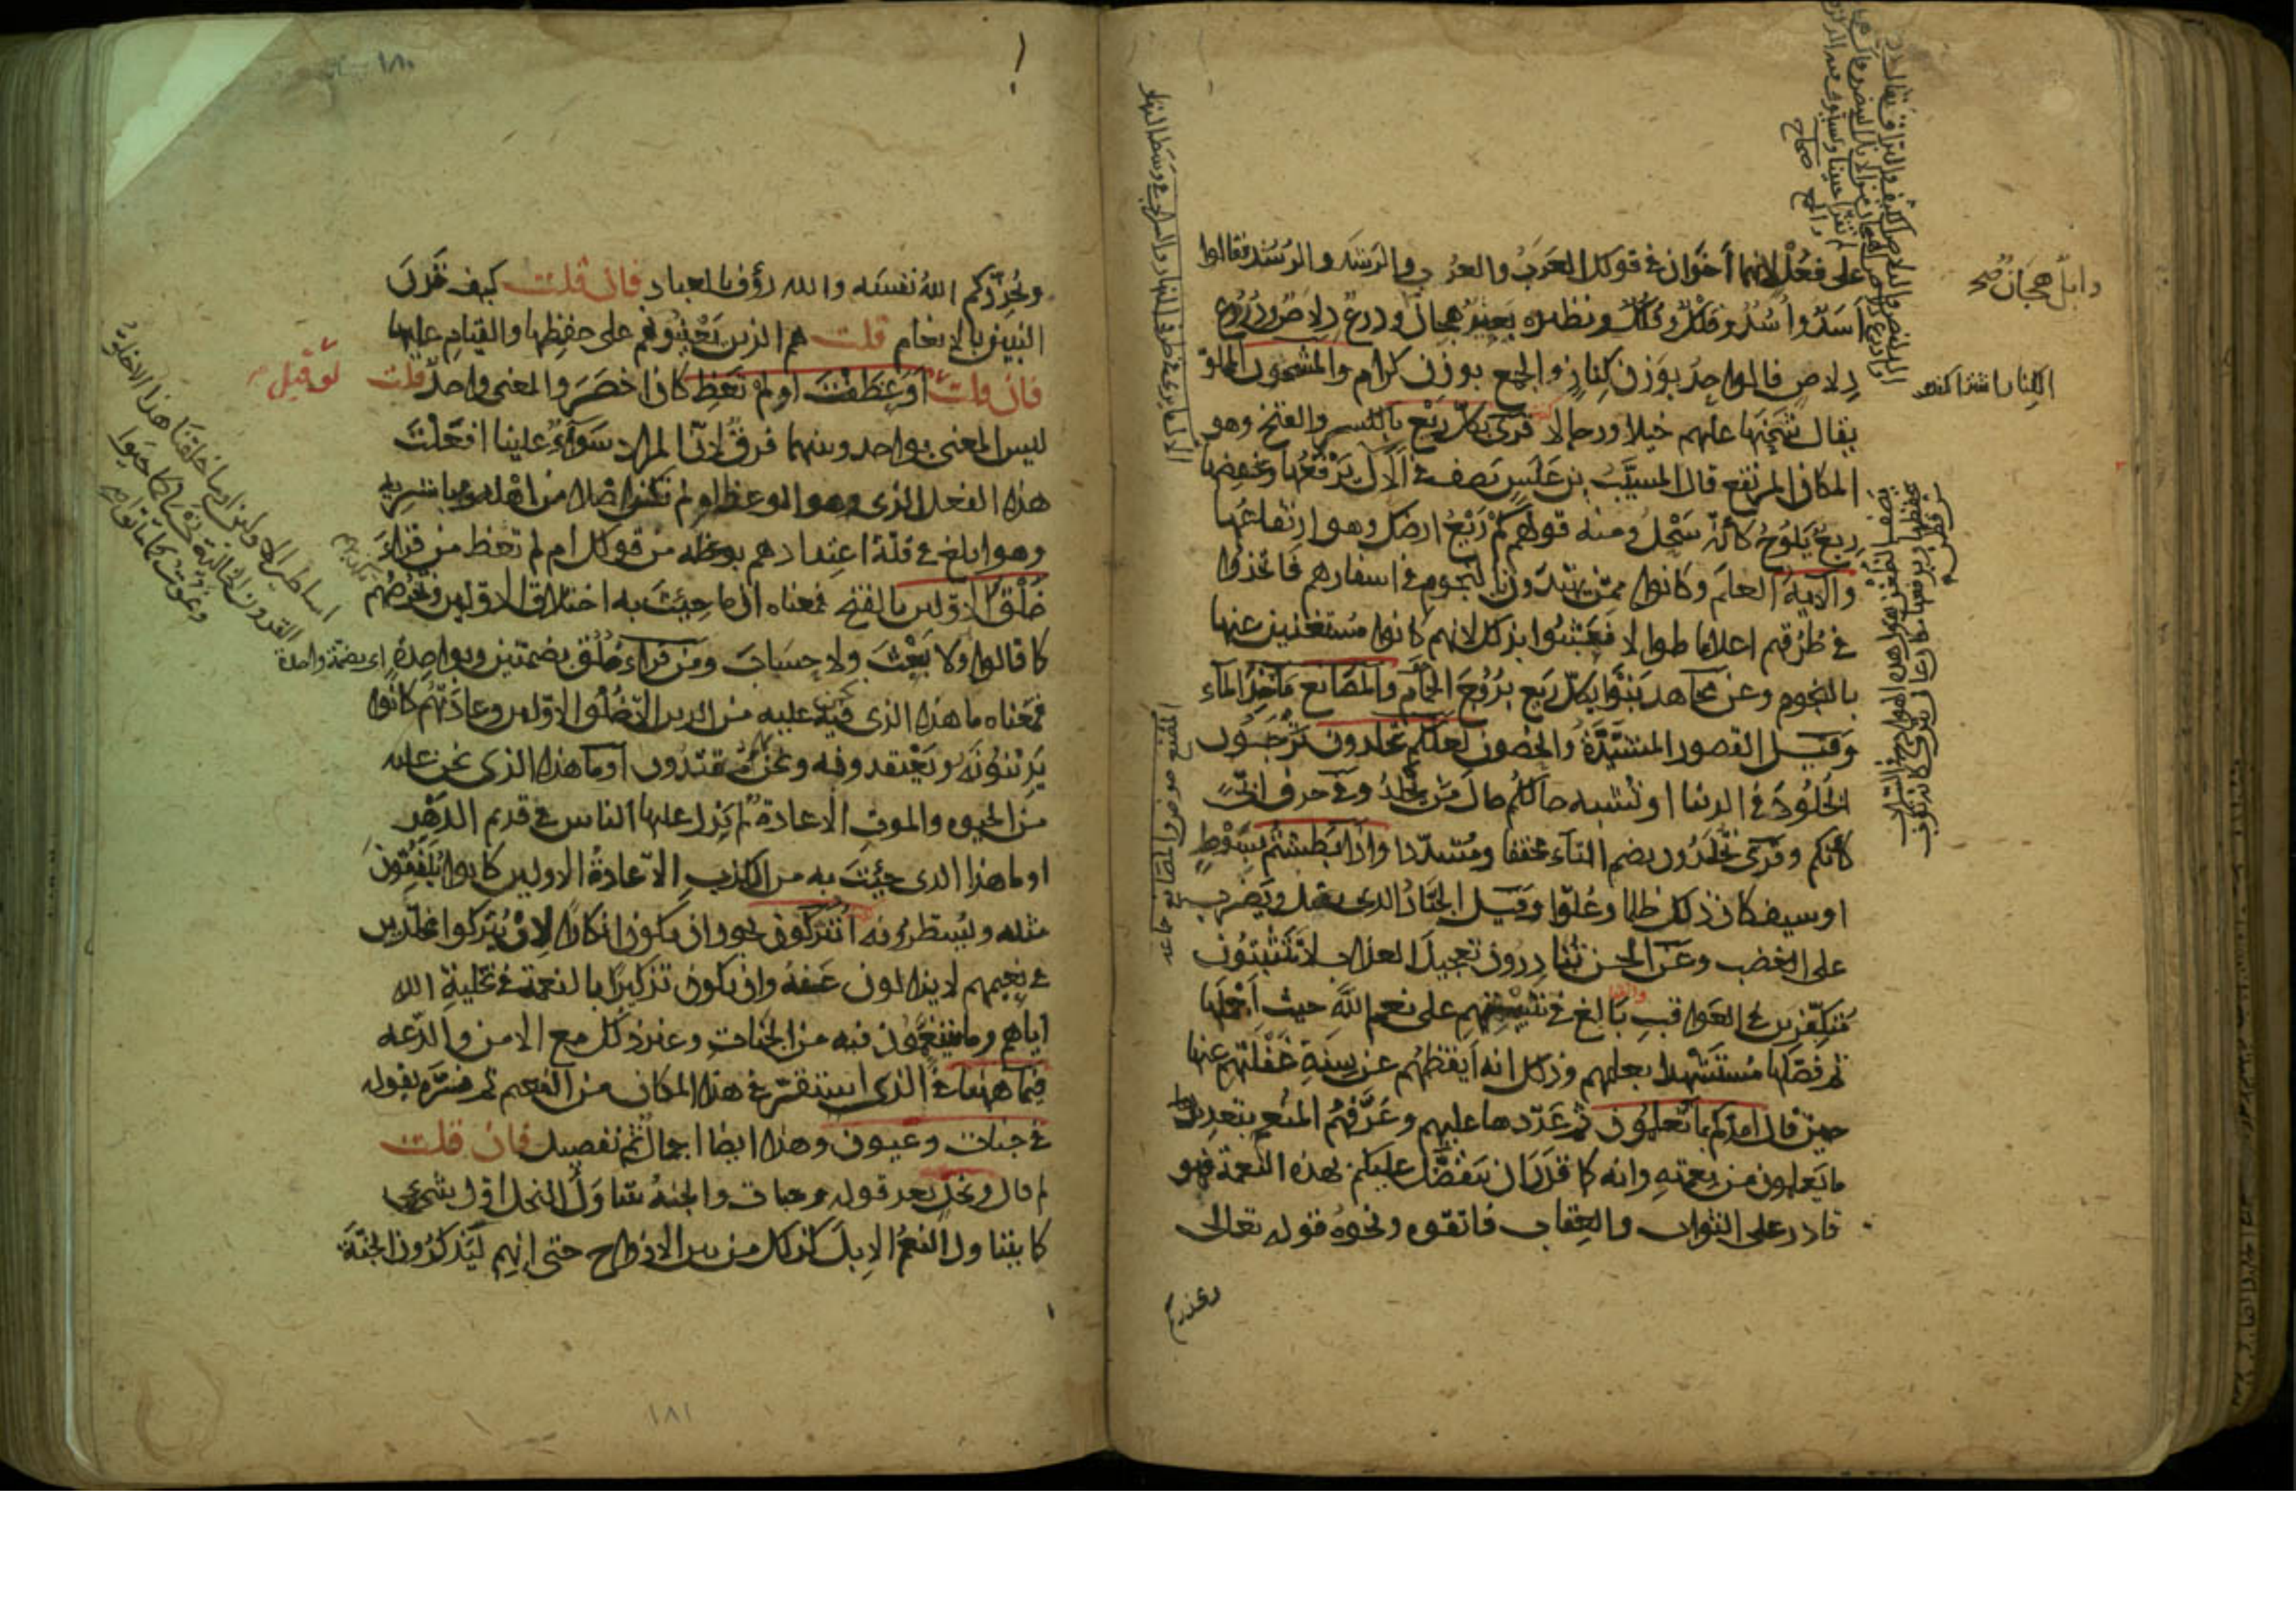 على فعل لانهما اخوان في قولك العَرَب والعُرْب والرَشَد والرُشْد فقالوا
اَسَد واُسْد وفَلَك وفُلْك ونظيره بعير هجان ودرع دلاص ودروع
دلاص فالواحد بوزن كناز والجمع بوزن كرام والمشحون المملو
يقال شحنها عليهم خيلا ورجالا قرئ بكل ريع بالكسر والفتح وهو
المكان المرتفع قال المسيب بن علس يصف في الآل يرفعها ويخفضها
ريع يلوح كانه سحل ومنه قولهم كم ريع ارضك وهو ارتفاعها
والآية العلم وكانوا ممن يهتدون بالنجوم في اسفارهم فاتخذوا
في طرقهم اعلاما طوالا فعبثوا بذلك لانهم كانوا مستغنين عنها
بالنجوم وعن مجاهد بنوا بكل ريع بروج الحمام والمصانع مآخذ الماء
وقيل القصور المشيدة والحصون لعلكم تخلدون ترجون
الخلود في الدنيا او تشبه حالكم حال من يخلد وفي حرف ابيّ
كانكم وقرئ تخلدون بضم التاء مخففا ومشددا واذا بطشتم بسوط
او سيف كان ذلك ظلما وعلوا وقيل الجبار الذي يقتل ويضرب
على الغضب وعن الحسن تبادرون تعجيل العذاب لا تتثبتون
متفكرين في العواقب بالغ في تنبيههم على نعم الله حيث اجملها
ثم فصلها مستشهدا بعلمهم وذلك انه ايقظهم عن سنة غفلتهم عنها
حين قال امدكم بما تعلمون ثم عددها عليهم وعرفهم المنعم بتعديد
ما يعلمون من نعمته وانه كما قدر ان يتفضل عليكم بهذه النعمة فهو
قادر على الثواب والعقاب فاتقوه ونحوه قوله تعالى
وابل هجان صح
ويحذركم
ويحذركم الله نفسه والله رؤف بالعباد فان قلت كيف قرن
البنين بالانعام قلت هم الذين يعينونهم على حفظها والقيام عليها
فان قلت اوعظت او لم تعظ كان اخصر والمعنى واحد قلت
لو قيل
ليس المعنى بواحد وبينهما فرق لان المراد سواء علينا افعلت
هذا الفعل الذي هو الوعظ او لم تكن اصلا من اهله ومباشريه
وهو ابلغ في قلة اعتدادهم بوعظه من قولك ام لم تعظ من قراء
خلق الاولين بالفتح فمعناه ان ما جئت به اختلاق الاولين وتخرصهم
كما قالوا ولا بعث ولا حساب ومن قراء خلق بضمتين وبواحدة اي بضمة واحدة
فمعناه ما هذا الذي نحن عليه من الدين الا خلق الاولين وعادتهم كانوا
يدينونه ويعتقدونه ونحن بهم مقتدون او ما هذا الذي نحن عليه
من الحيوة والموت الا عادة لم يزل عليها الناس في قديم الدهر
او ما هذا الذي جئت به من الكذب الا عادة الاولين كانوا يلفقون
مثله ويسطرونه اتتركون يجوز ان يكون انكارا لان يتركوا مخلدين
في نعيمهم لا يزالون عنه وان يكون تذكيرا بالنعمة في تخلية الله
اياهم وما يتنعمون فيه من الجنات وغير ذلك مع الامن والدعه
فيما ههنا في الذي استقر في هذا المكان من النعيم ثم فسره بقوله
في جنات وعيون وهذا ايضا اجمال ثم تفصيل فان قلت
لم قال ونخل بعد قوله وجنات والجنة تتناول النخل اول شيء
كما يتناول النعم الابل كذلك من بين الازواج حتى انهم ليذكرون الجنة
اساطير الاولين او ما خلقنا هذا الا خلق
القرون الخالية نحيى كما حيوا
ونموت كما ماتوا
١٨٠
١٨١